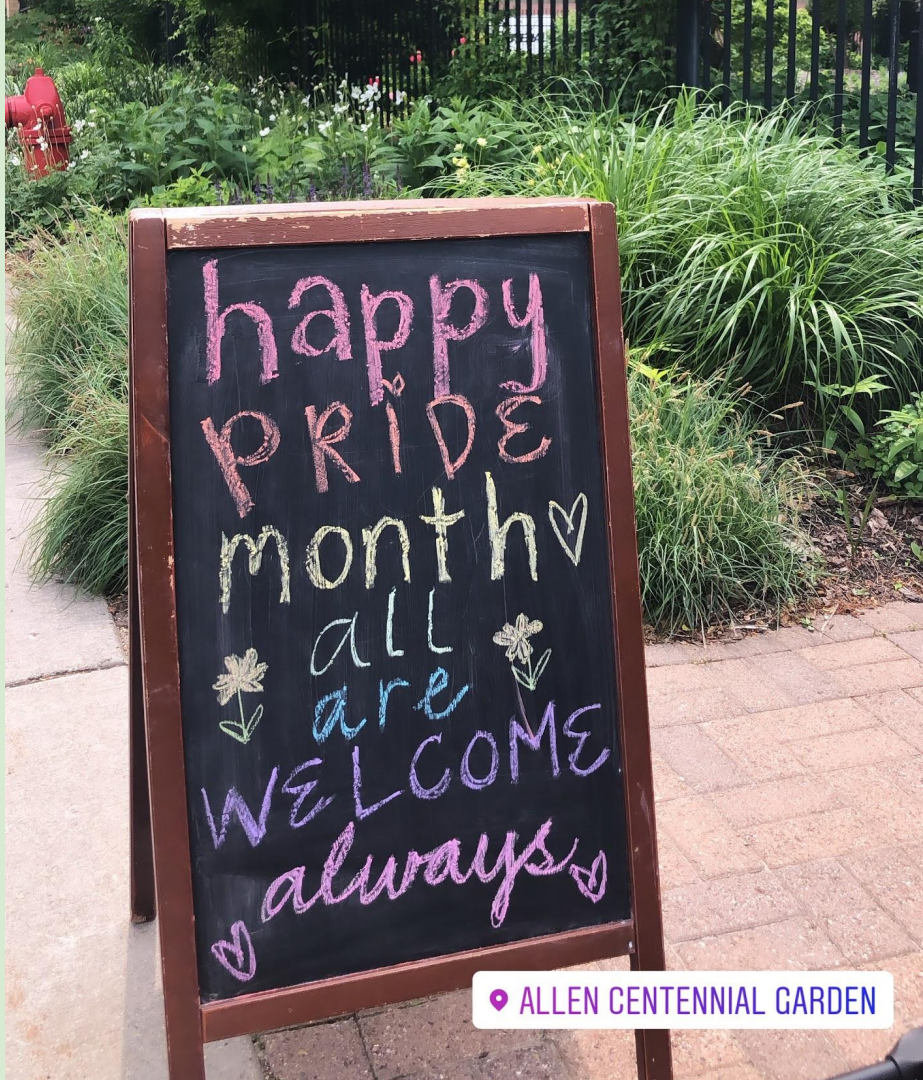 happy
PRiDE
month
all
are
WELCOME
always
ALLEN CENTENNIAL GARDEN